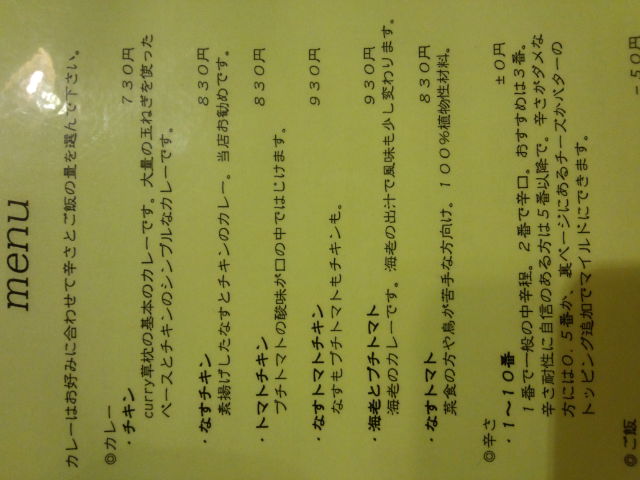 menu
カレーはお好みに合わせて辛さとご飯の量を選んで下さい。
◎カレー
・チキン 730円
curry草枕の基本のカレーです。大量の玉ねぎを使った
ベースとチキンのシンプルなカレーです。
・なすチキン 830円
素揚げしたなすとチキンのカレー。当店お勧めです。
・トマトチキン 830円
プチトマトの酸味が口の中ではじけます。
・なすトマトチキン 930円
なすもプチトマトもチキンも。
・海老とプチトマト 930円
海老のカレーです。海老の出汁で風味も少し変わります。
・なすトマト 830円
菜食の方や鳥が苦手な方向け。100%植物性材料。
◎辛さ
・1～10番 ±0円
1番で一般の中辛程。2番で辛口。おすすめは3番。
辛さ耐性に自信のある方は5番以降で。辛さがダメな
方には0.5番か、裏ページにあるチーズかバターの
トッピング追加でマイルドにできます。
◎ご飯
-50円